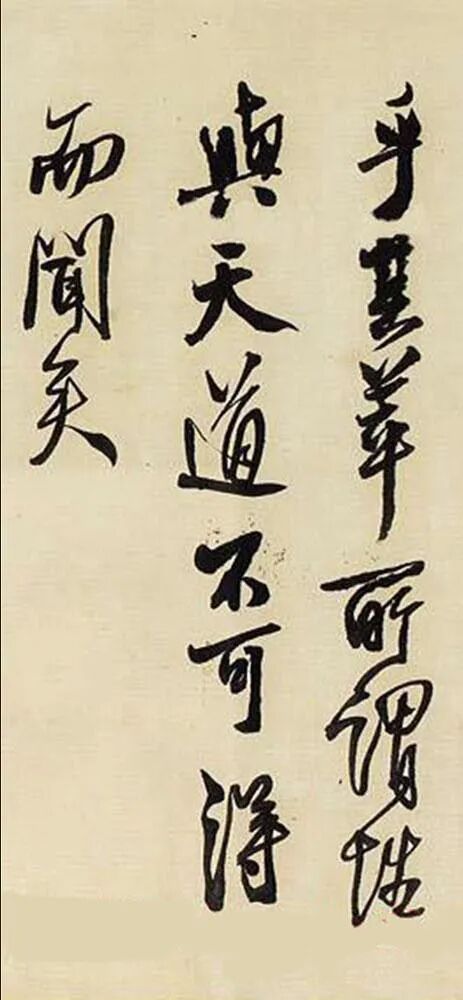 乎其萃所謂性
與天道不可得
而聞矣